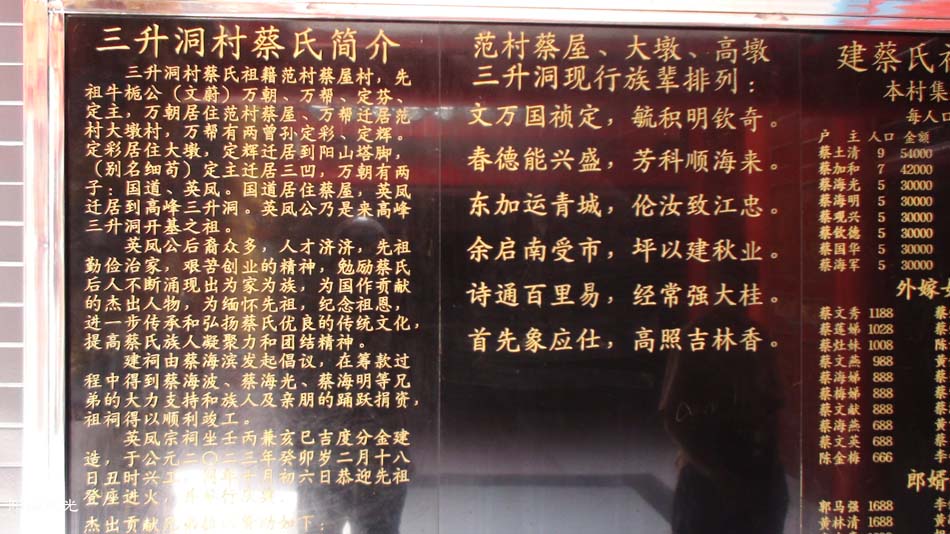 三升洞村蔡氏简介
三升洞村蔡氏祖籍范村蔡屋村，先
祖牛栀公（文蔚）万朝、万帮、定芬、
定主，万朝居住范村蔡屋、万帮迁居范
村大墩村，万帮有两曾孙定彩、定辉。
定彩居住大墩，定辉迁居到阳山塔脚，
（别名细苟）定主迁居三凹，万朝有两
子：国道、英凤。国道居住蔡屋，英凤
迁居到高峰三升洞。英凤公乃是来高峰
三升洞开基之祖。
英凤公后裔众多，人才济济，先祖
勤俭治家，艰苦创业的精神，勉励蔡氏
后人不断涌现出为家为族，为国作贡献
的杰出人物，为缅怀先祖，纪念祖恩，
进一步传承和弘扬蔡氏优良的传统文化，
提高蔡氏族人凝聚力和团结精神。
建祠由蔡海滨发起倡议，在筹款过
程中得到蔡海波、蔡海光、蔡海明等兄
弟的大力支持和族人及亲朋的踊跃捐资，
祖祠得以顺利竣工。
英凤宗祠坐壬丙兼亥巳吉度分金建
造，于公元二〇二三年癸卯岁二月十八
日丑时兴工，同年十月初六日恭迎先祖
登座进火，
杰出贡献
如下：
范村蔡屋、大墩、高墩
三升洞现行族辈排列：
文万国祯定，毓积明钦奇。
春德能兴盛，芳科顺海来。
东加运青城，伦汝致江忠。
余启南受市，坪以建秋业。
诗通百里易，经常强大桂。
首先象应仕，高照吉林香。
建蔡氏
本村集
每人口
户 主 人口 金额
蔡土清 9 54000
蔡加和 7 42000
蔡海光 5 30000
蔡海明 5 30000
蔡观兴 5 30000
蔡钦德 5 30000
蔡国华 5 30000
蔡海军 5 30000
外嫁
蔡文秀 1188
蔡莲娣 1028
蔡灶妹 1008
蔡文燕 988
蔡海娣 888
蔡梅娣 888
蔡文献 888
蔡海燕 688
蔡文英 688
陈金梅 666
郎婿
郭马强 1688
黄林清 1688